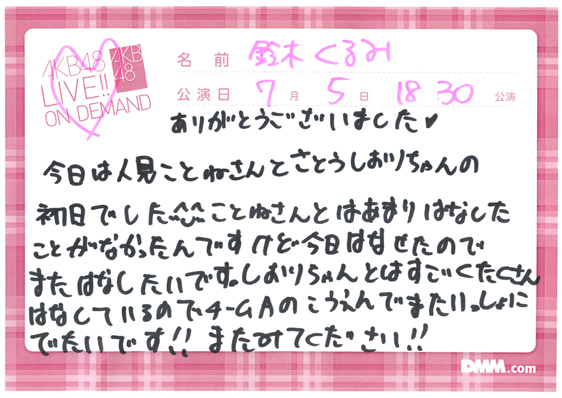 AKB48
LIVE!!
ON DEMAND
AKB
48
名前 鈴木くるみ
公演日 7月 5日 18:30 公演
ありがとうございました♥
今日は人見ことねさんとさとうしおりちゃんの
初日でした^^ことねさんとはあまりはなした
ことがなかったんですけど今日はなせたので
またはなしたいです。しおりちゃんとはすごくたくさん
はなしているのでチームAのこうえんでまたいっしょに
でたいです!! またみてください!!
DMM.com